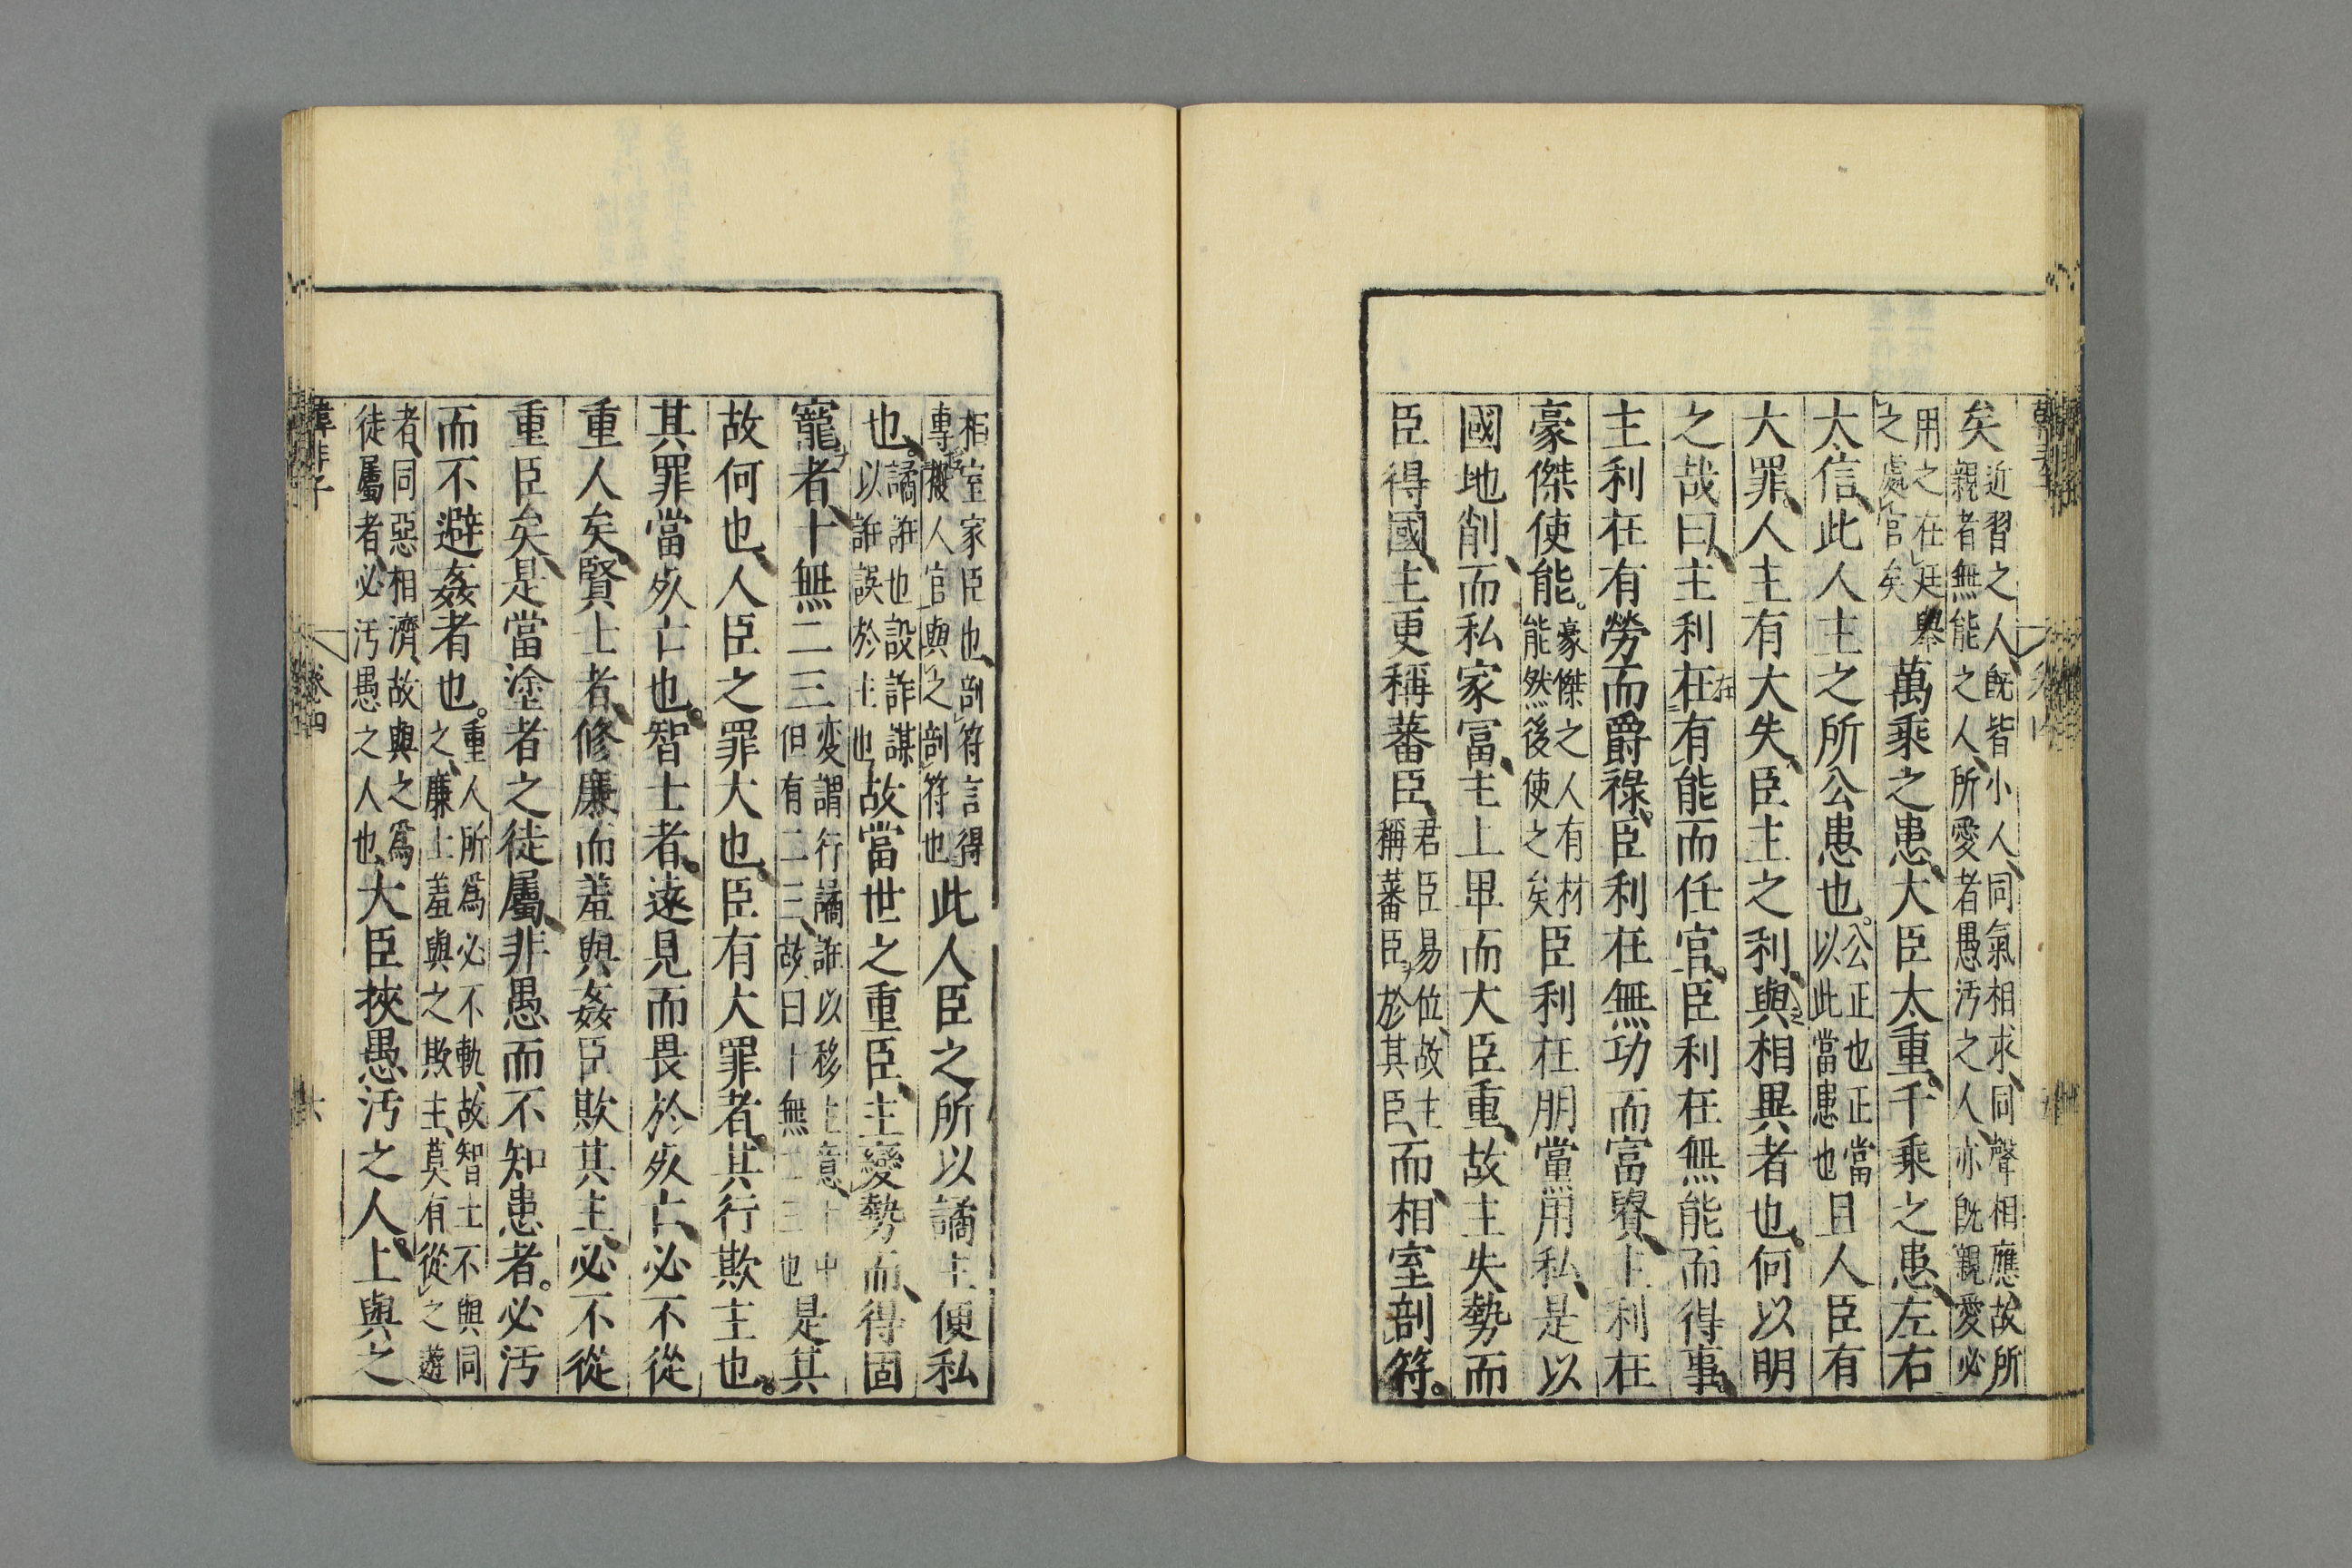 矣近習之人既皆小人同氣相求同聲相應故所親者無能之人所愛者愚汚之人亦既親愛必
用之在廷舉之處官矣萬乘之患大臣太重千乘之患左右
太信此人主之所公患也。公正也正當以此當患也且人臣有
大罪人主有大失臣主之利與相異者也。何以明
之哉曰主利在有能而任官臣利在無能而得事
主利在有勞而爵祿臣利在無功而富貴主利在
豪傑使能。豪傑之人有材能然後使之矣臣利在朋黨用私是以
國地削而私家富主上卑而大臣重故主失勢而
臣得國主更稱蕃臣君臣易位故主稱蕃臣於其臣而相室剖符。
相室家臣也剖符言得專擬人官與之剖符也此人臣之所以譎主便私
也。譎誑也設詐謀以誑誤於主也故當世之重臣主變勢而得固
寵者十無二三変謂行譎誑以移主意十中但有二三故曰十無二三也是其
故何也人臣之罪大也。臣有大罪者其行欺主也。
其罪當死亡也。智士者遠見而畏於死亡必不從
重人矣賢士者修廉而羞與姦臣欺其主必不從
重臣矣是當塗者之徒屬非愚而不知患者。必汚
而不避姦者也。重人所爲必不軌故智士不與同之廉士羞與之欺主莫有從之遊
者同惡相濟故與之爲徒屬者必汚愚之人也大臣挾愚汚之人。上與之
韓非子 卷四 六